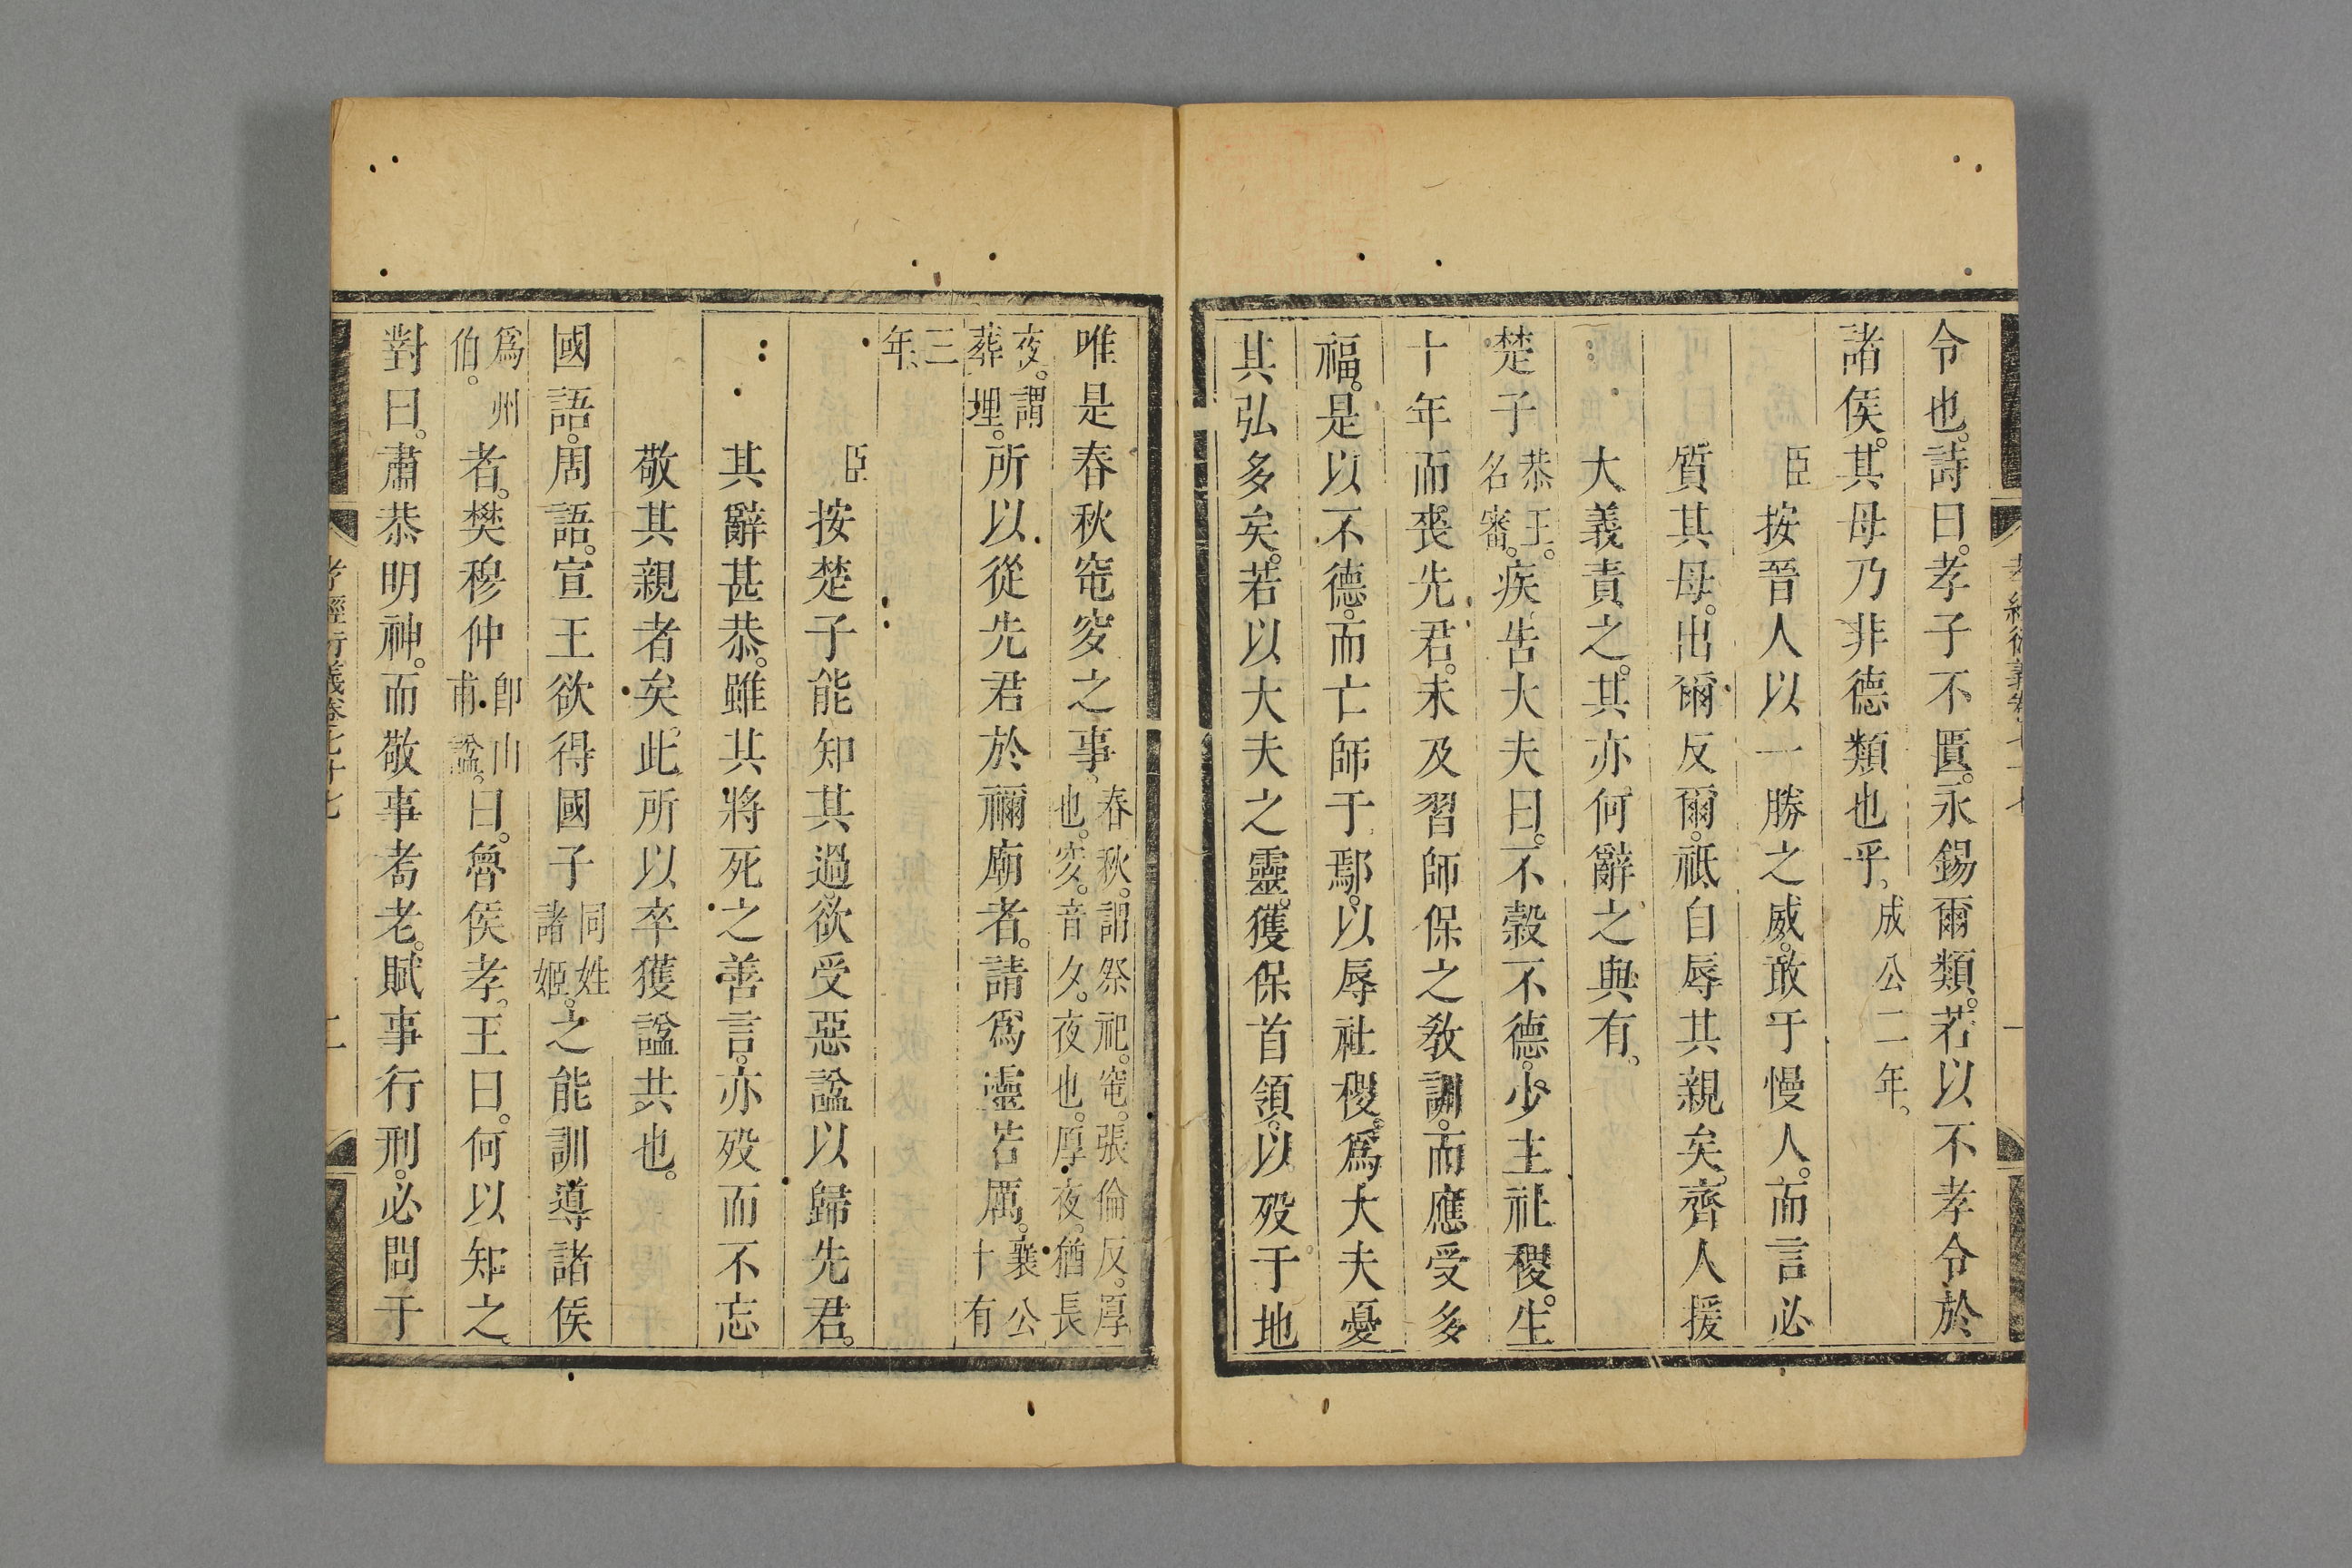 令也。詩曰。孝子不匱。永錫爾類。若以不孝令於
諸侯。其母乃非德類也乎。成公二年。
臣按晉人以一勝之威。敢于慢人。而言必
質其母。出爾反爾。祗自辱其親矣。齊人援
大義責之。其亦何辭之與有。
楚子恭王。名審。疾。告大夫曰。不穀不德。少主社稷。生
十年而喪先君。未及習師保之敎訓。而應受多
福。是以不德。而亡師于鄢。以辱社稷。爲大夫憂
其弘多矣。若以大夫之靈。獲保首領。以歿于地
唯是春秋窀穸之事。春秋。謂祭祀。窀。張倫反。厚也。穸。音夕。夜也。厚夜。猶長
夜。謂葬埋。所以從先君於禰廟者。請爲靈若厲。襄公十有
三年
臣按楚子能知其過。欲受惡諡以歸先君。
其辭甚恭。雖其將死之善言。亦歿而不忘
敬其親者矣。此所以卒獲諡共也。
國語。周語。宣王欲得國子同姓諸姬。之能訓導諸侯
爲州伯。者。樊穆仲卽山甫諡。曰。魯侯孝。王曰。何以知之
對曰。肅恭明神。而敬事耇老。賦事行刑。必問于
孝經衍義卷七十七
二